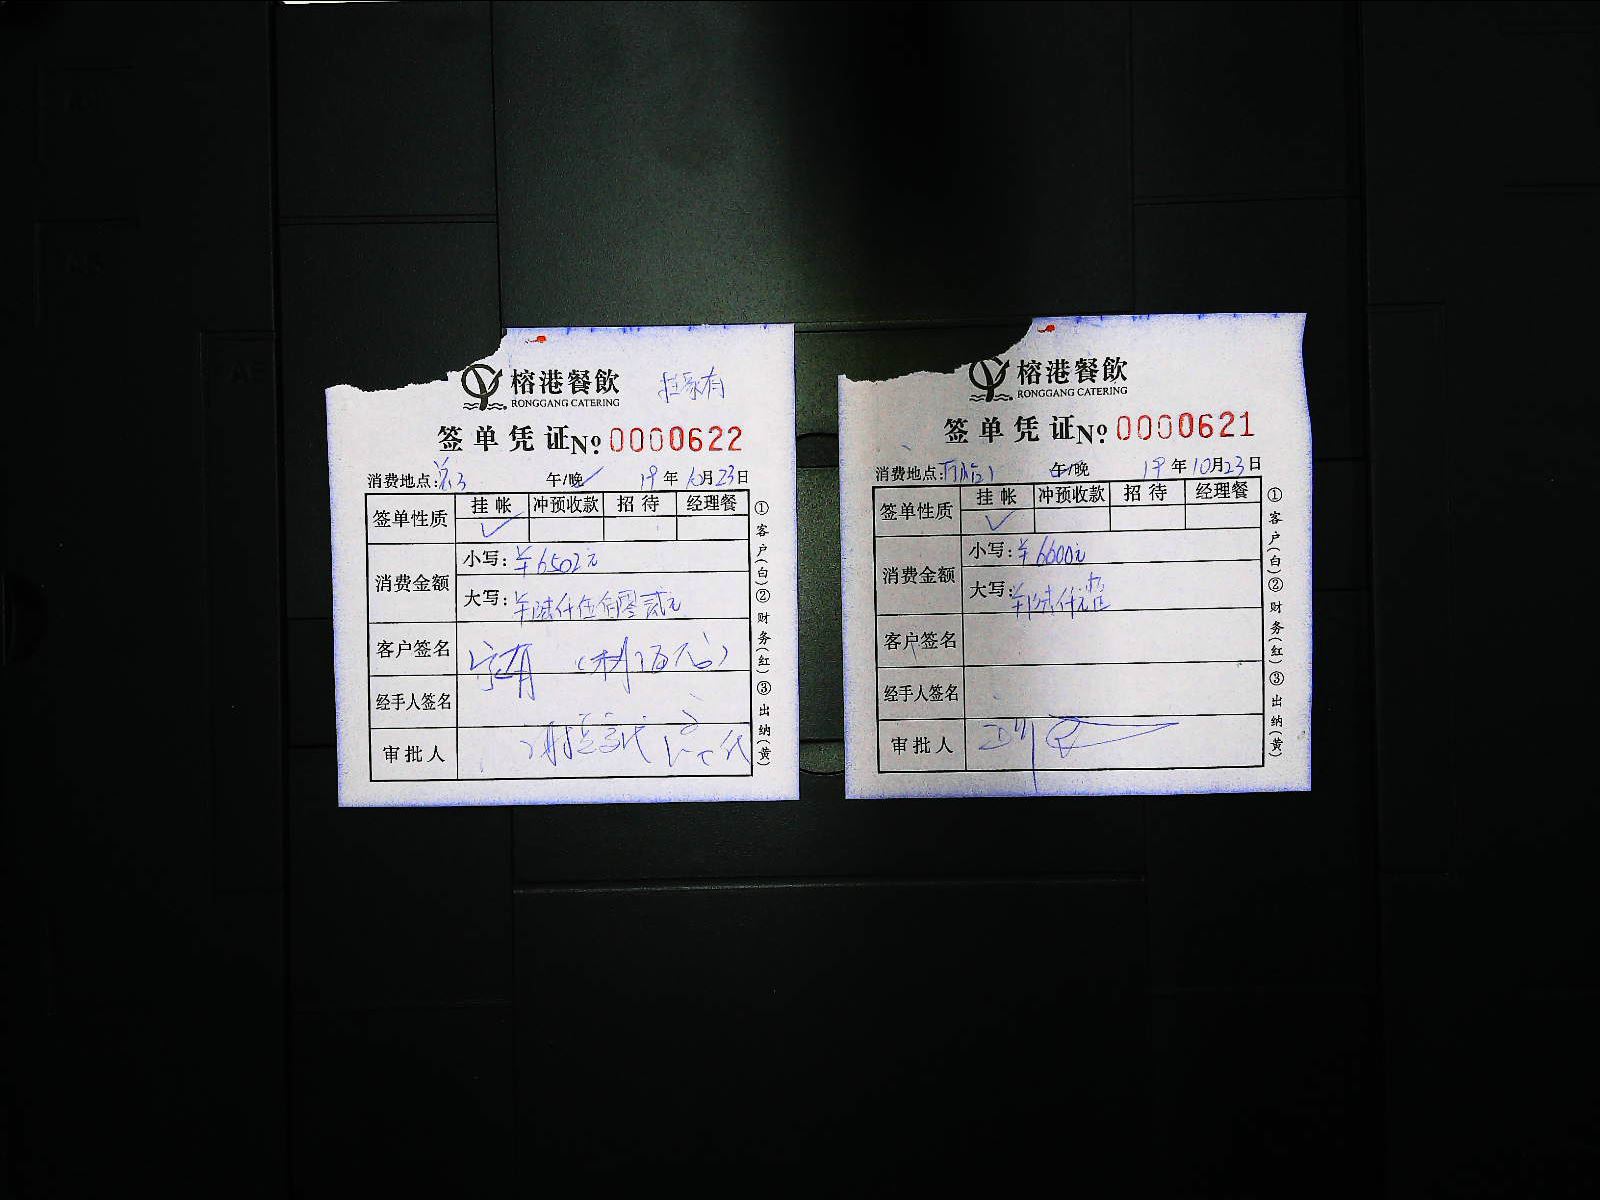 榕港餐飲
RONGGANG CATERING
签单凭证 No. 0000622
消费地点: 午/晚 19年10月23日
签单性质 挂帐 冲预收款 招待 经理餐
✓
消费金额 小写: ¥6502元
大写: ¥陆仟伍佰零贰元
客户签名
经手人签名
审批人
①客户(白)②财务(红)③出纳(黄)
榕港餐飲
RONGGANG CATERING
签单凭证 No. 0000621
消费地点: 午/晚 19年10月23日
签单性质 挂帐 冲预收款 招待 经理餐
✓
消费金额 小写: ¥6600元
大写: ¥陆仟元整
客户签名
经手人签名
审批人
①客户(白)②财务(红)③出纳(黄)